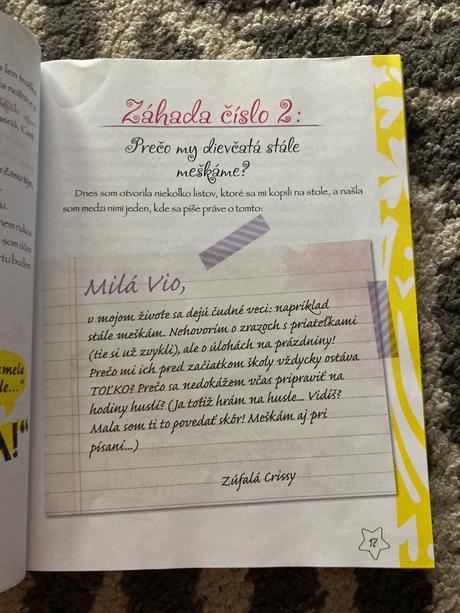 len trošku,
nožnice, s
asná. Čím
času tým,
u.
nem rukou
som účes
rtu buden
mela
le..."
A!"
Záhada číslo 2:
Prečo my dievčatá stále
meškáme?
Dnes som otvorila niekoľko listov, ktoré sa mi kopili na stole, a našla
som medzi nimi jeden, kde sa píše práve o tomto:
Milá Vio,
v mojom živote sa dejú čudné veci: napríklad
stále meškám. Nehovorím o zrazoch s priateľkami
(tie si už zvykli), ale o úlohách na prázdniny!
Prečo mi ich pred začiatkom školy vždycky ostáva
TOĽKO? Prečo sa nedokážem včas pripraviť na
hodiny huslí? (Ja totiž hrám na husle... Vidíš?
Mala som ti to povedať skôr! Meškám aj pri
písaní...)
Zúfalá Crissy
17